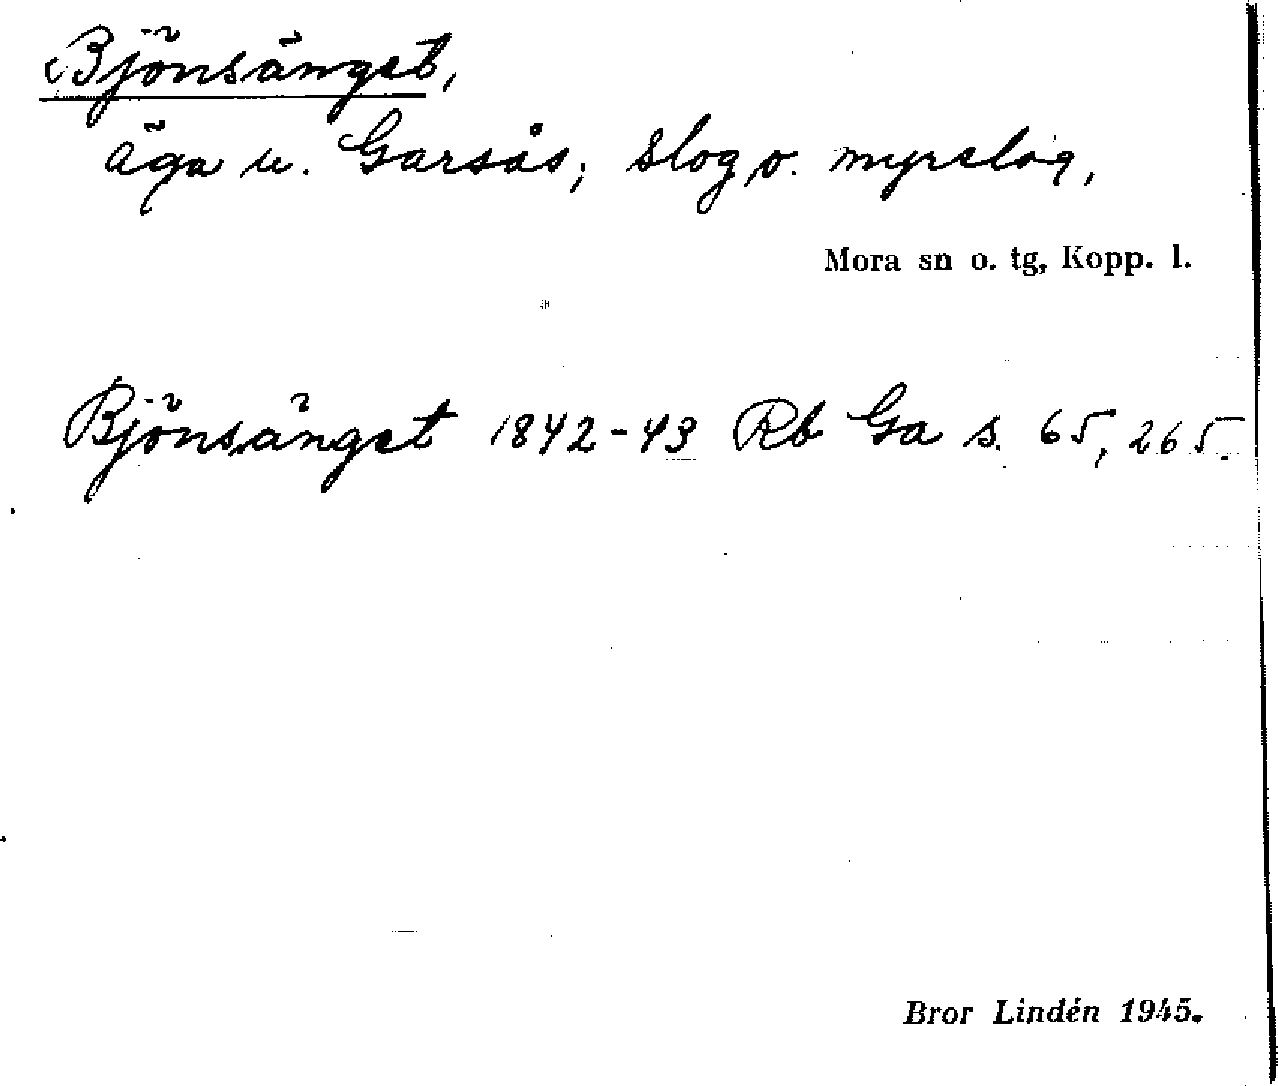 Bjönsänget,
äga u. Garsås; slog o. myrslog,
Mora sn o. tg, Kopp. l.
Bjönsänget 1842-43 Rb Ga s. 65, 265.
Bror Lindén 1945.